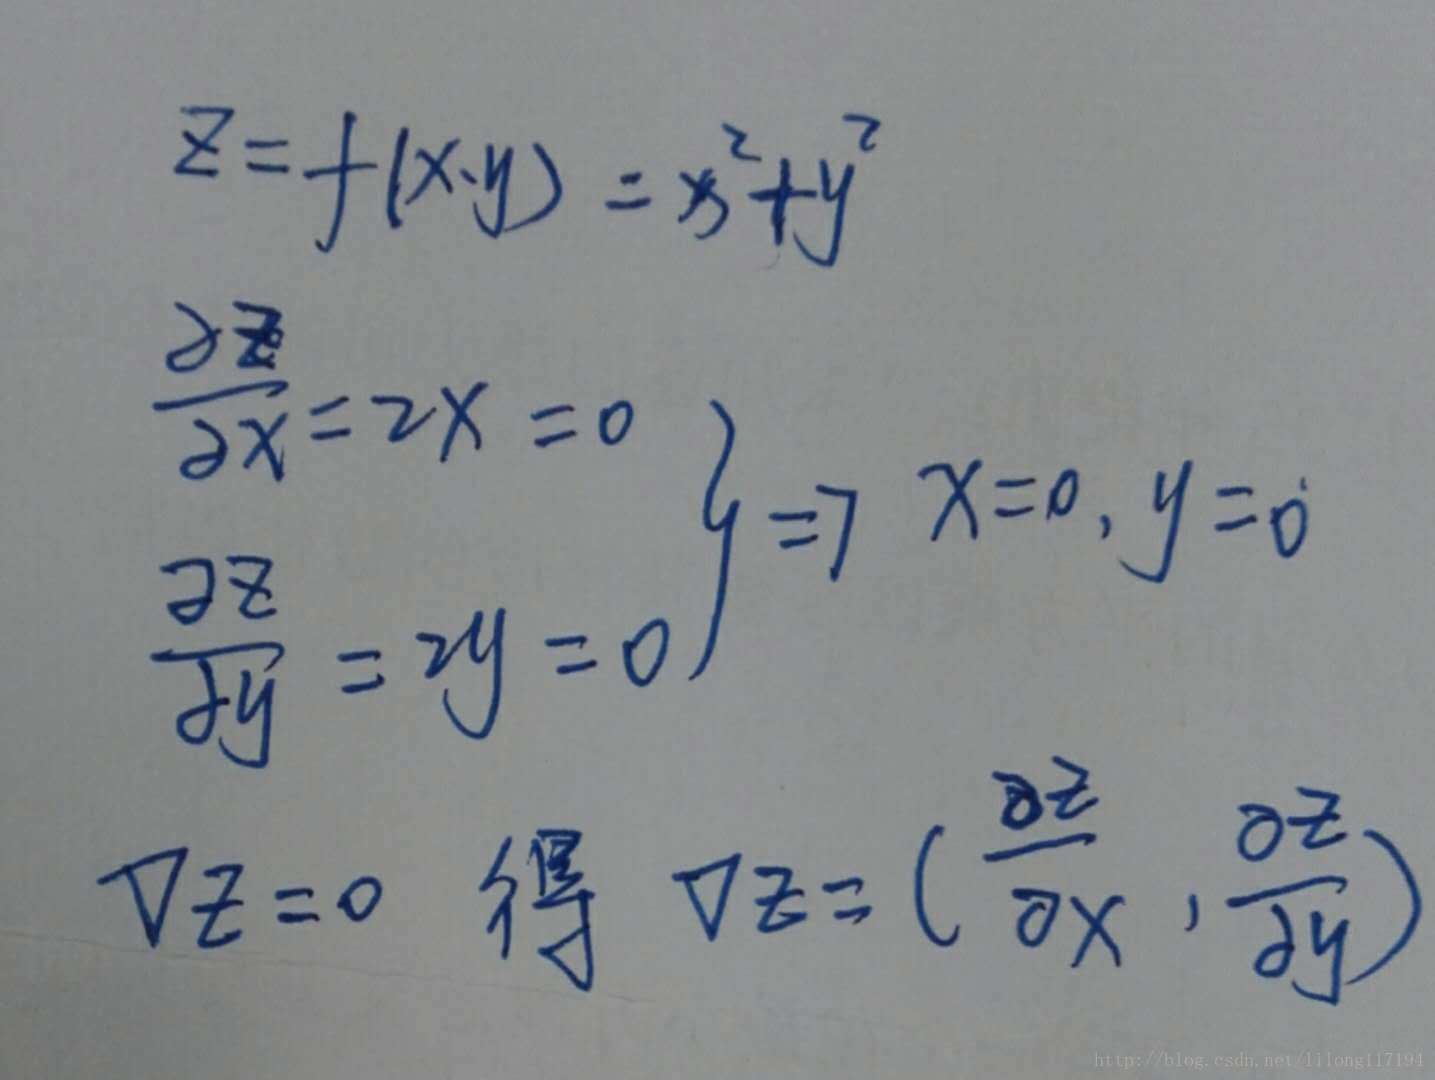 z = f(x·y) = x² + y²
∂z/∂x = 2x = 0
∂z/∂y = 2y = 0 } => x=0, y=0
∇z = 0 得 ∇z = (∂z/∂x, ∂z/∂y)
http://blog.csdn.net/lilong117194